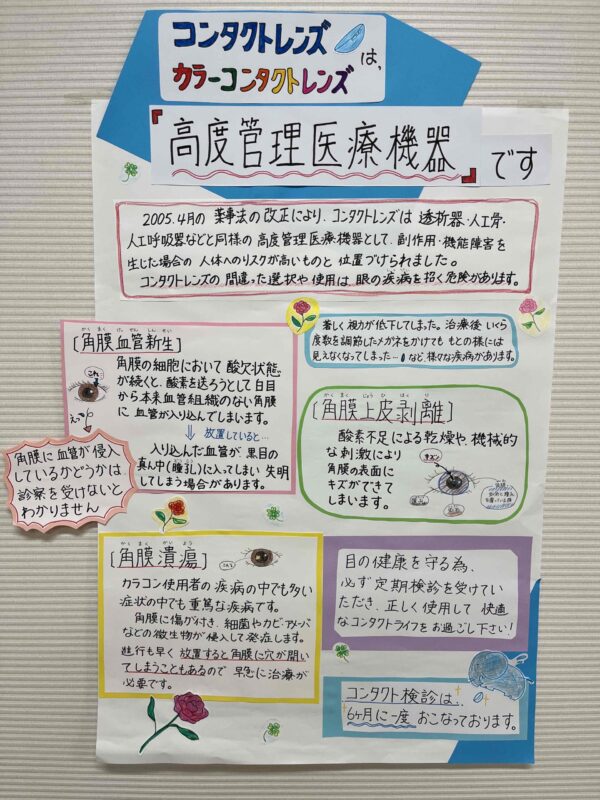 コンタクトレンズ
カラーコンタクトレンズ は、
『高度管理医療機器』です
2005.4月の 薬事法の改正により、コンタクトレンズは 透析器・人工骨・
人工呼吸器などと同様の 高度管理医療機器として、副作用・機能障害を
生じた場合の 人体へのリスクが高いものと 位置づけられました。
コンタクトレンズの間違った選択や使用は 眼の疾病を招く危険があります。
著しく視力が低下してしまった。治療後 いくら
度数を調節したメガネをかけても もとの様には
見えなくなってしまった… など、様々な疾病があります。
かく まく けっ かん しん せい
[角膜血管新生]
角膜の細胞において 酸欠状態
が続くと、酸素を送ろうとして 白目
から本来血管組織のない角膜
に 血管が入り込んでしまいます。
これ
⇓ 放置していると…
入り込んだ血管が、黒目の
真ん中(瞳孔)に入ってしまい 失明
してしまう場合があります。
角膜に血管が侵入
しているかどうかは
診察を受けないと
わかりません
かく まく じょう ひ はく り
[角膜上皮剥離]
酸素不足による乾燥や、機械的
な刺激により
角膜の表面に
キズができて
しまいます。
キズ
かく まく かい よう
[角膜潰瘍]
カラコン使用者の疾病の中でも多い
症状の中でも 重篤な疾病です。
角膜に傷が付き、細菌やカビ・アメーバ
などの微生物が侵入して発症します。
進行も早く 放置すると角膜に穴が開い
てしまうこともあるので 早急に治療が
必要です。
目の健康を守る為、
必ず定期検診を受けてい
ただき、正しく使用して 快適
なコンタクトライフを お過ごし下さい!
コンタクト検診は、
6ヶ月に一度 おこなっております。